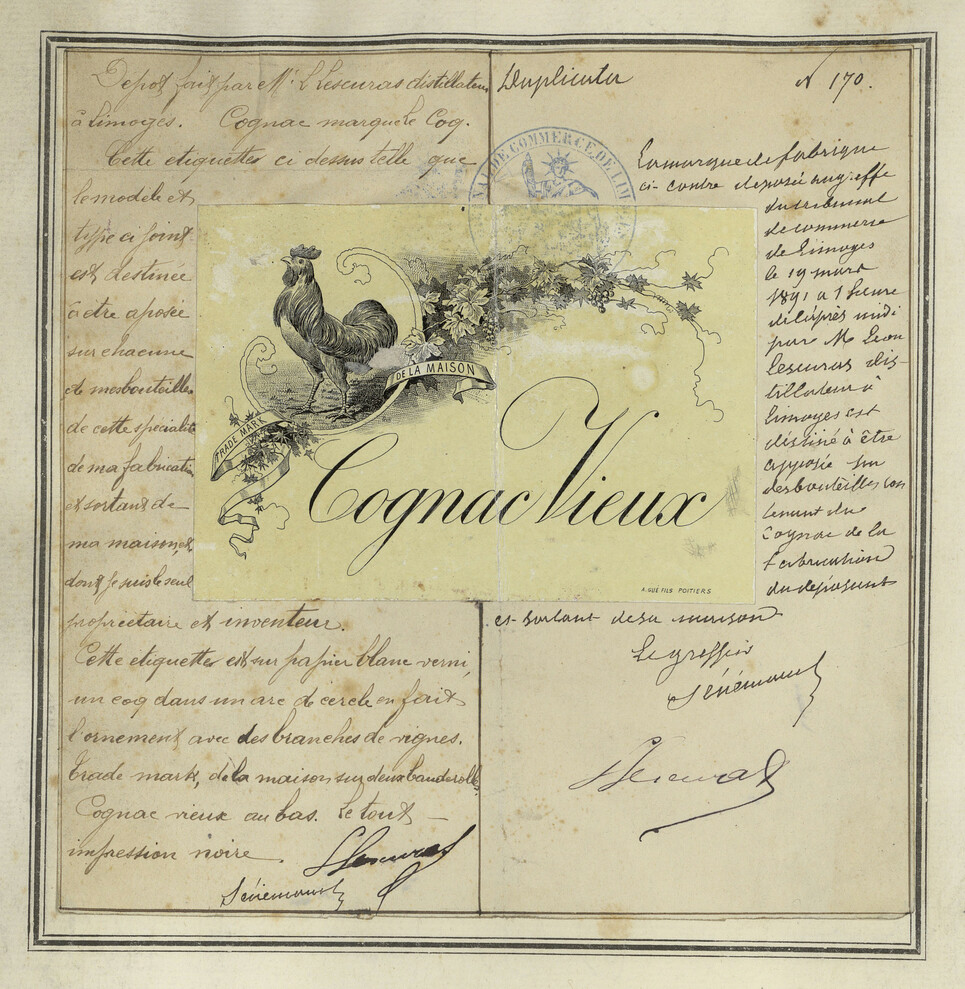 Depot fait par Mr. L Lescuras distillateur
à Limoges. Cognac marque Le Coq.
Cette etiquettes ci dessus telle que
le modèle et
type ci joint
est destinée
à etre aposée
sur chacune
de mes bouteilles
de cette specialité
de ma fabrication
et sortant de
ma maison, et
dont je suis le seul
propriétaire et inventeur.
Cette etiquettes est sur papier blanc verni,
un coq dans un arc de cercle en fait
l'ornement avec des branches de vignes.
Trade mark, de la maison sur deux banderolles
Cognac vieux au bas. Le tout
impression noire.
L Lescuras
Duplicata
N 170.
TRIBUNAL DE COMMERCE DE LIMOGES
La marque de fabrique
ci-contre déposée au greffe
du tribunal
de commerce
de Limoges
le 19 mars
1891 a 1 heure
de l'après midi
par M Leon
Lescuras dis-
tillateur à
Limoges est
destiné à être
apposée sur
des bouteilles con
tenant du
Cognac de la
fabrication
du déposant
et sortant de sa maison
Le greffier
L Lescuras
DE LA MAISON
TRADE MARK
Cognac Vieux
A. GUÉ FILS POITIERS